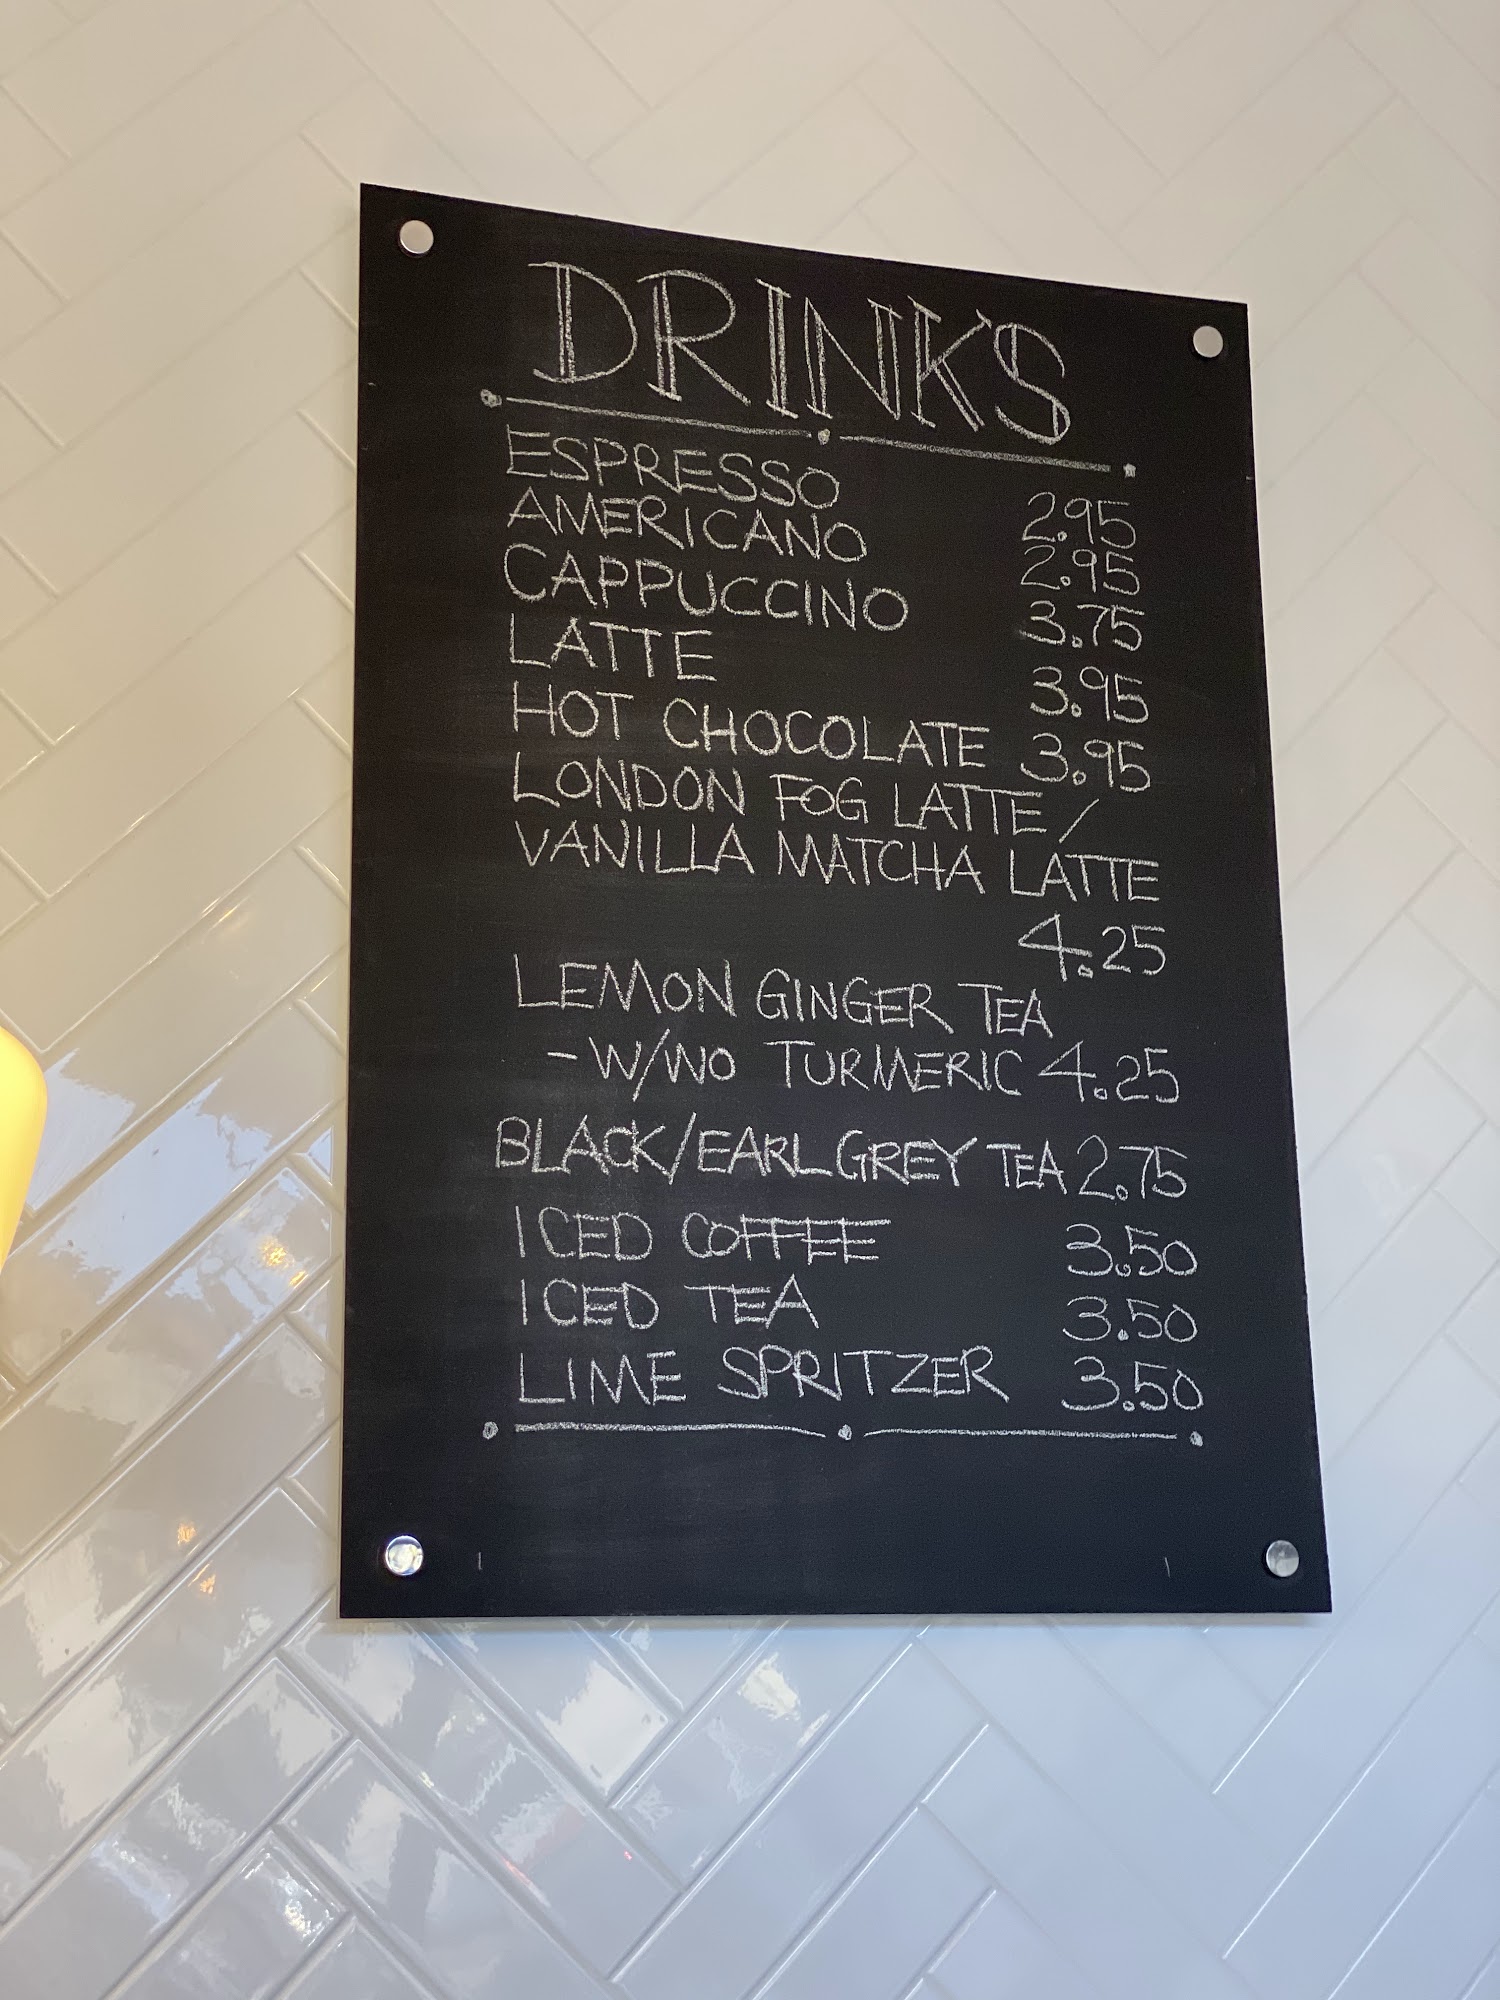 DRINKS
ESPRESSO 2.95
AMERICANO 2.95
CAPPUCCINO 3.75
LATTE 3.95
HOT CHOCOLATE 3.95
LONDON FOG LATTE /
VANILLA MATCHA LATTE
4.25
LEMON GINGER TEA
- W/WO TURMERIC 4.25
BLACK/EARL GREY TEA 2.75
ICED COFFEE 3.50
ICED TEA 3.50
LIME SPRITZER 3.50